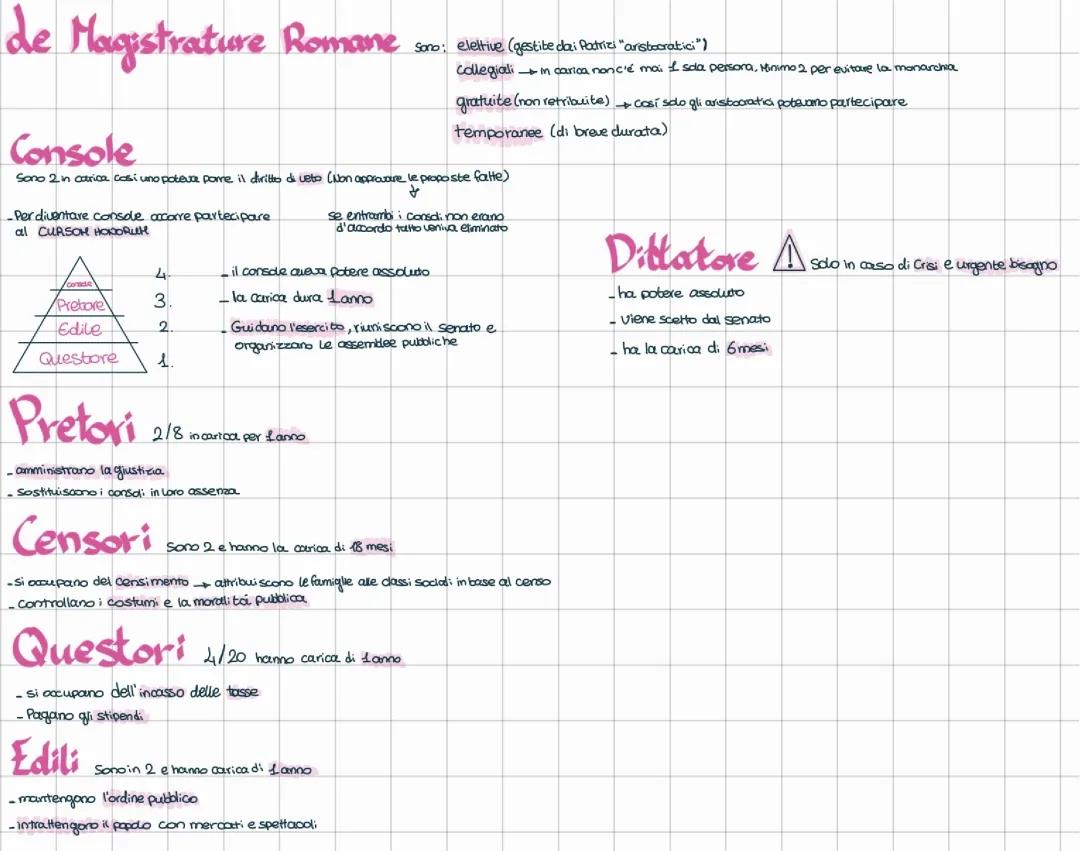 Le Magistrature Romane sono: elettive (gestite dai Patrizi "aristocratici")
collegiali → in carica non c'é mai 1 sola persona, Minimo 2 per evitare la monarchia
gratuite (non retribuite) → così solo gli aristocratici potevano partecipare
temporanee (di breve durata)
Console
Sono 2 in carica così uno poteva porre il diritto di veto (Non approvare le proposte fatte)
↓
se entrambi i consoli non erano
d'accordo tutto veniva eliminato
- Per diventare console occorre partecipare
al CURSOM HONORUM
Console 4.
Pretore 3.
Edile 2.
Questore 1.
- il console aveva potere assoluto
- la carica dura 1 anno
- Guidano l'esercito, riuniscono il senato e
organizzano le assemblee pubbliche
Dittatore ! Solo in caso di Crisi e urgente bisogno
- ha potere assoluto
- viene scelto dal senato
- ha la carica di 6 mesi
Pretori 2/8 in carica per 1 anno
- amministrano la giustizia
- Sostituiscono i consoli in loro assenza
Censori Sono 2 e hanno la carica di 18 mesi
- si occupano del censimento → attribuiscono le famiglie alle classi sociali in base al censo
- controllano i costumi e la moralità pubblica
Questori 4/20 hanno carica di 1 anno
- si occupano dell'incasso delle tasse
- Pagano gli stipendi
Edili Sono in 2 e hanno carica di 1 anno
- mantengono l'ordine pubblico
- intrattengono il popolo con mercati e spettacoli